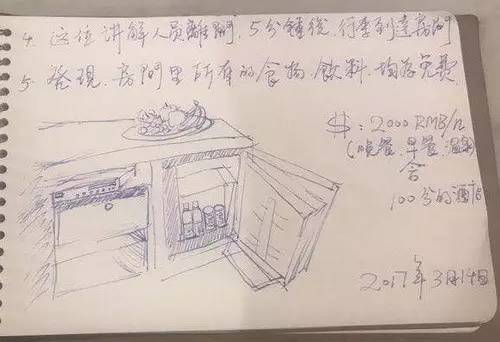 4. 这位讲解人员離開, 5分鍾後, 行李到達房間
5. 發現, 房間里所有的食物, 飲料, 均为免费
$: 2000 RMB/n
(晚餐、早餐、温泉)
含
100分的酒店
2017年3月14日